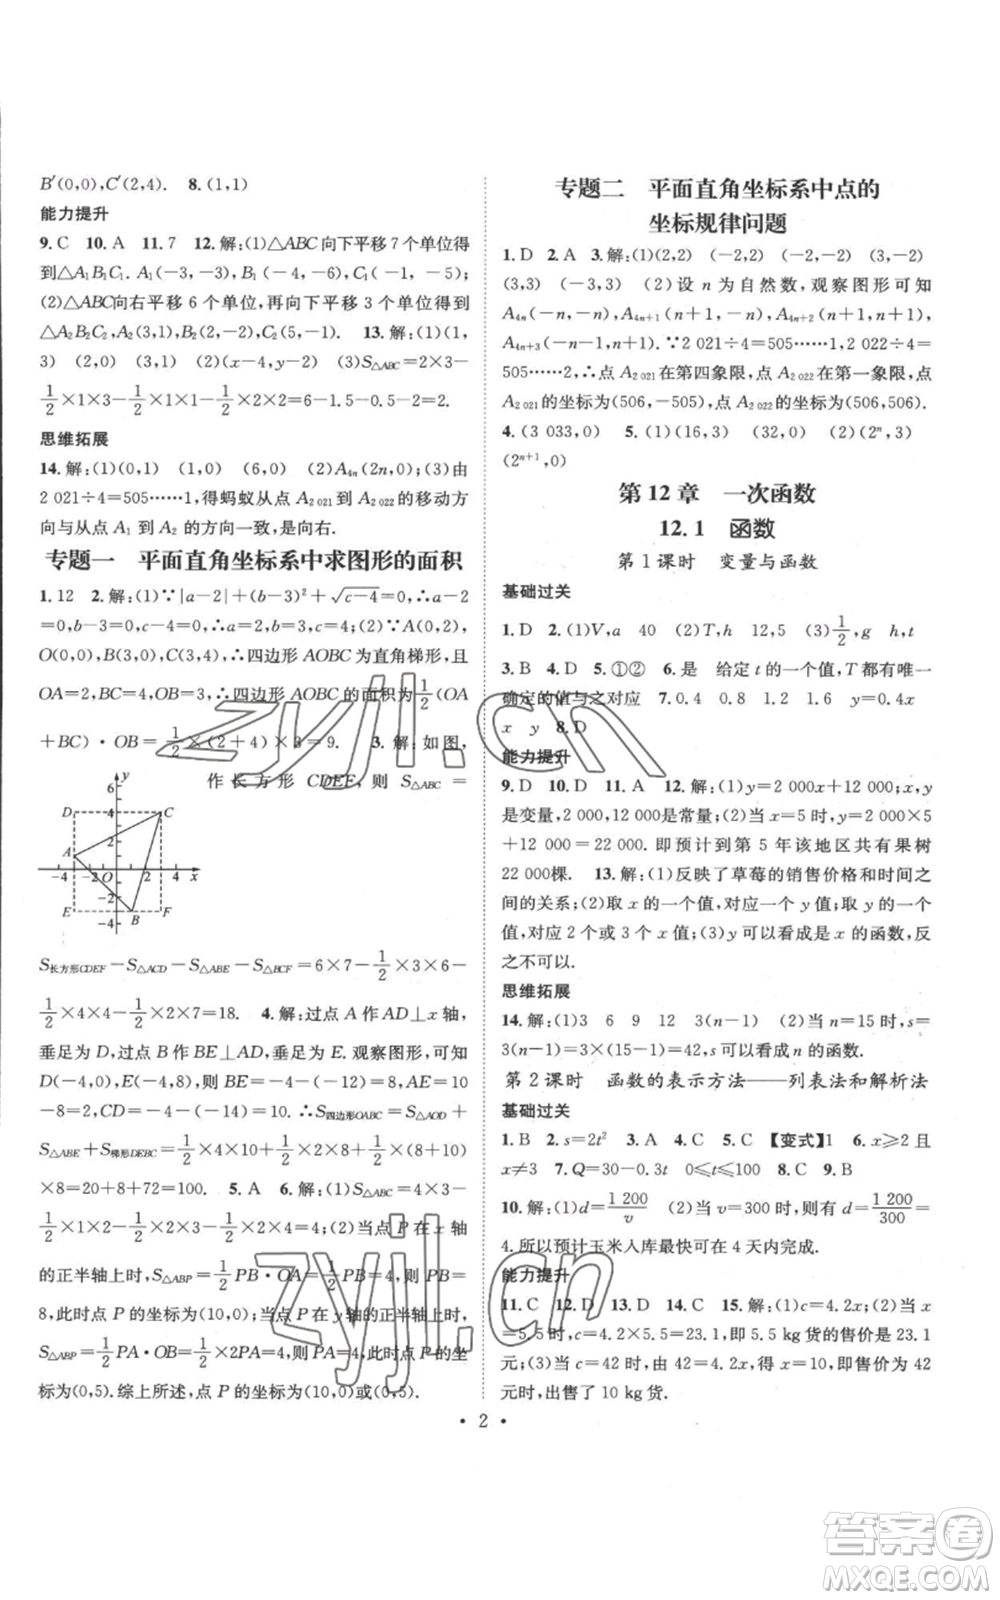 B′(0,0),C′(2,4).  8.(1,1)
能力提升
9.C  10.A  11.7  12.解:(1)△ABC向下平移7个单位得
到△A₁B₁C₁. A₁(-3,-3), B₁(-4,-6), C₁(-1,-5);
(2)△ABC向右平移 6 个单位,再向下平移 3 个单位得到
△A₂B₂C₂,A₂(3,1),B₂(2,-2),C₂(5,-1).  13.解:(1)(1,
3)  (2,0)  (3,1)  (2)(x-4,y-2)  (3)S△ABC=2×3-
1/2×1×3-1/2×1×1-1/2×2×2=6-1.5-0.5-2=2.
思维拓展
14.解:(1)(0,1)  (1,0)  (6,0)  (2)A₄ₙ(2n,0);(3)由
2 021÷4=505……1,得蚂蚁从点A₂₀₂₁到点A₂₀₂₂的移动方
向与从点 A₁ 到 A₂ 的方向一致,是向右.
专题一  平面直角坐标系中求图形的面积
1.12  2.解:(1)∵|a-2|+(b-3)²+√(c-4)=0,∴a-2
=0,b-3=0,c-4=0,∴a=2,b=3,c=4;(2)∵A(0,2),
O(0,0),B(3,0),C(3,4),∴四边形 AOBC为直角梯形,且
OA=2,BC=4,OB=3,∴四边形 AOBC 的面积为1/2(OA
+BC)·OB=1/2×(2+4)×3=9.  3.解:如图,
作长方形 CDEF,则 S△ABC=
y
6
D
C
4
2
A
-4 -2 O 2 4 x
-2
E
B
F
-4
S长方形CDEF-S△ACD-S△ABE-S△BCF=6×7-1/2×3×6-
1/2×4×4-1/2×2×7=18.  4.解:过点 A 作 AD⊥x 轴,
垂足为 D,过点 B 作 BE⊥AD,垂足为 E. 观察图形,可知
D(-4,0),E(-4,8),则 BE=-4-(-12)=8,AE=10
-8=2,CD=-4-(-14)=10.∴S四边形OABC=S△AOD+
S△ABE+S梯形DEBC=1/2×4×10+1/2×2×8+1/2×(8+10)
×8=20+8+72=100.  5.A  6.解:(1)S△ABC=4×3-
1/2×1×2-1/2×2×3-1/2×2×4=4;(2)当点 P在x 轴
的正半轴上时,S△ABP=1/2PB·OA=1/2×1×PB=4,PB=
8,此时点 P 的坐标为(10,0);当点 P在y的正半轴上时,
S△ABP=1/2PA·OB=1/2×2PA=4,PA=4,此时点 P 的坐
标为(0,5).综上所述,点 P 的坐标为(10,0)或(0,5).
专题二  平面直角坐标系中点的
坐标规律问题
1.D  2.A  3.解:(1)(2,2)  (-2,2)  (-2,-2)  (3,-2)
(3,3)  (-3,3)  (2)设 n 为自然数,观察图形可知
A₄ₙ(-n,-n), A₄ₙ₊₁(n+1,-n), A₄ₙ₊₂(n+1,n+1),
A₄ₙ₊₃(-n-1,n+1).∵2 021÷4=505……1,2 022÷4=
505……2,∴点A₂₀₂₁在第四象限,点A₂₀₂₂在第一象限,点
A₂₀₂₁的坐标为(506,-505),点A₂₀₂₂的坐标为(506,506).
4.(3 033,0)  5.(1)(16,3)  (32,0)  (2)(2ⁿ,3)
(2ⁿ⁺¹,0)
第 12 章  一次函数
12.1  函数
第1课时  变量与函数
基础过关
1.D  2.(1)V,a  40  (2)T,h  12,5  (3)1/2,g  h,t
3.B  4.D  5.①②  6.是  给定 t 的一个值,T 都有唯一
确定的值与之对应  7.0.4  0.8  1.2  1.6  y=0.4x
x  y  8.D
能力提升
9.D  10.D  11.A  12.解:(1)y=2 000x+12 000;x,y
是变量,2 000,12 000是常量;(2)当 x=5 时,y=2 000×5
+12 000=22 000.即预计到第 5 年该地区共有果树
22 000棵.  13.解:(1)反映了草莓的销售价格和时间之间
的关系;(2)可以取 x 的一个值,对应 y 一个值;取 y 一个值,
对应 2 个或 3 个 x 值;(3)y 可以看成是 x 的函数,反
之不可以.
思维拓展
14.解:(1)3  6  9  12  3(n-1)  (2)当 n=15 时,s=
3(n-1)=3×(15-1)=42,s 可以看成 n 的函数.
第2课时  函数的表示方法——列表法和解析法
基础过关
1.B  2.s=2t²  3.D  4.C  5.C  【变式】1  6.x≥2 且
x≠3  7.Q=30-0.3t  0≤t≤100  8.C  9.B
10.解:(1)d=1 200/v  (2)当 v=300 时,则有 d=1 200/300=
4.所以预计玉米入库最快可在 4 天内完成.
能力提升
11.C  12.D  13.D  14.C  15.解:(1)c=4.2x;(2)当 x
=5.5 时,c=4.2×5.5=23.1,即 5.5 kg货的售价是 23.1
元;(3)当 c=42 时,由 42=4.2x,得 x=10,即当售价为 42
元时,出售了 10 kg 货.
• 2 •
zyjl.cn
zyjl.cn
答案卷
MXQE.COM